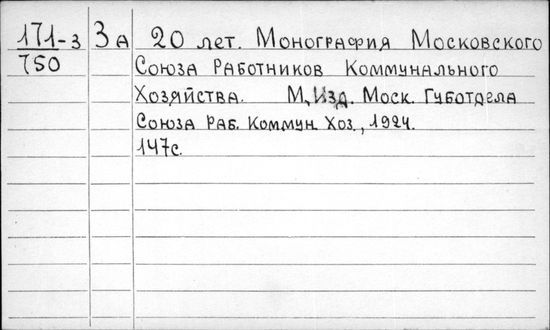 171-3 За 20 лет. Монография Московского
750 Союза Работников Коммунального
Хозяйства. М, Изд. Моск. Губотдела
Союза Раб. Коммун. Хоз., 1924.
147с.